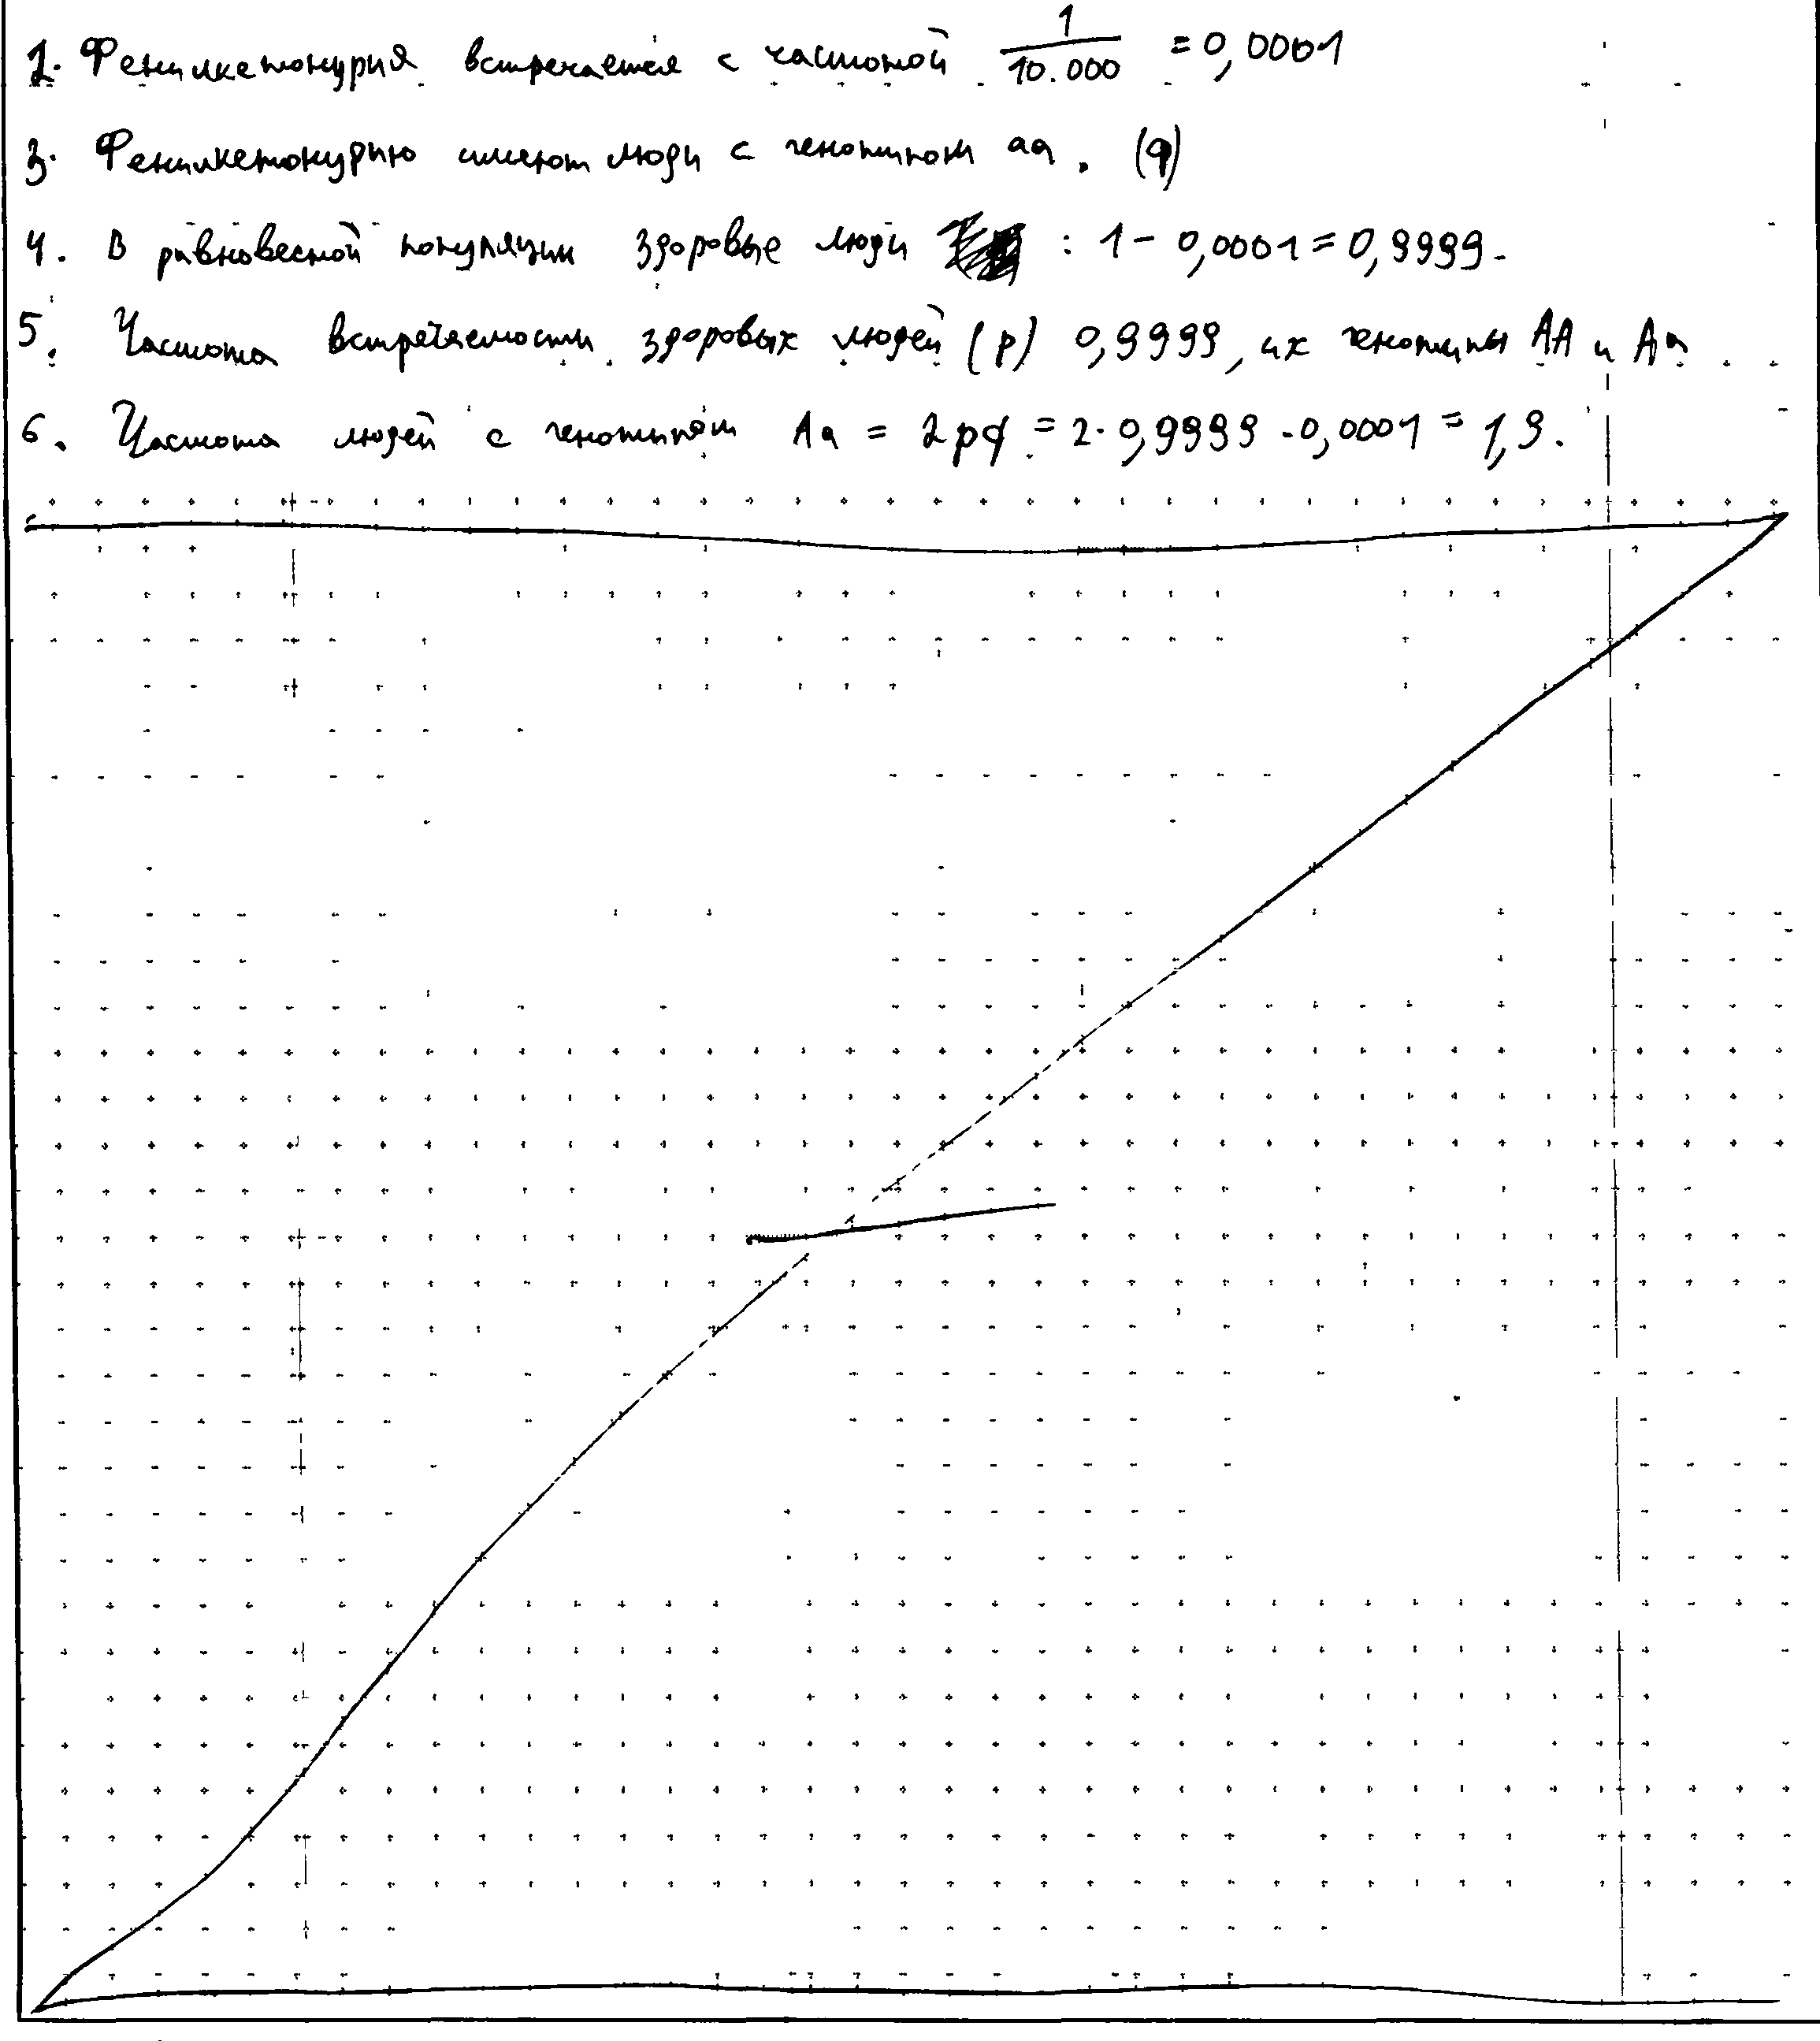 2. Фенилкетонурия встречается с частотой 1/10.000 = 0,0001
3. Фенилкетонурию имеют люди с генотипом аа. (q)
4. В равновесной популяции здоровые люди : 1 - 0,0001 = 0,9999.
5. Частота встречаемости здоровых людей (p) 0,9999, их генотипы АА и Аа
6. Частота людей с генотипом Аа = 2pq = 2·0,9999·0,0001 = 1,9.